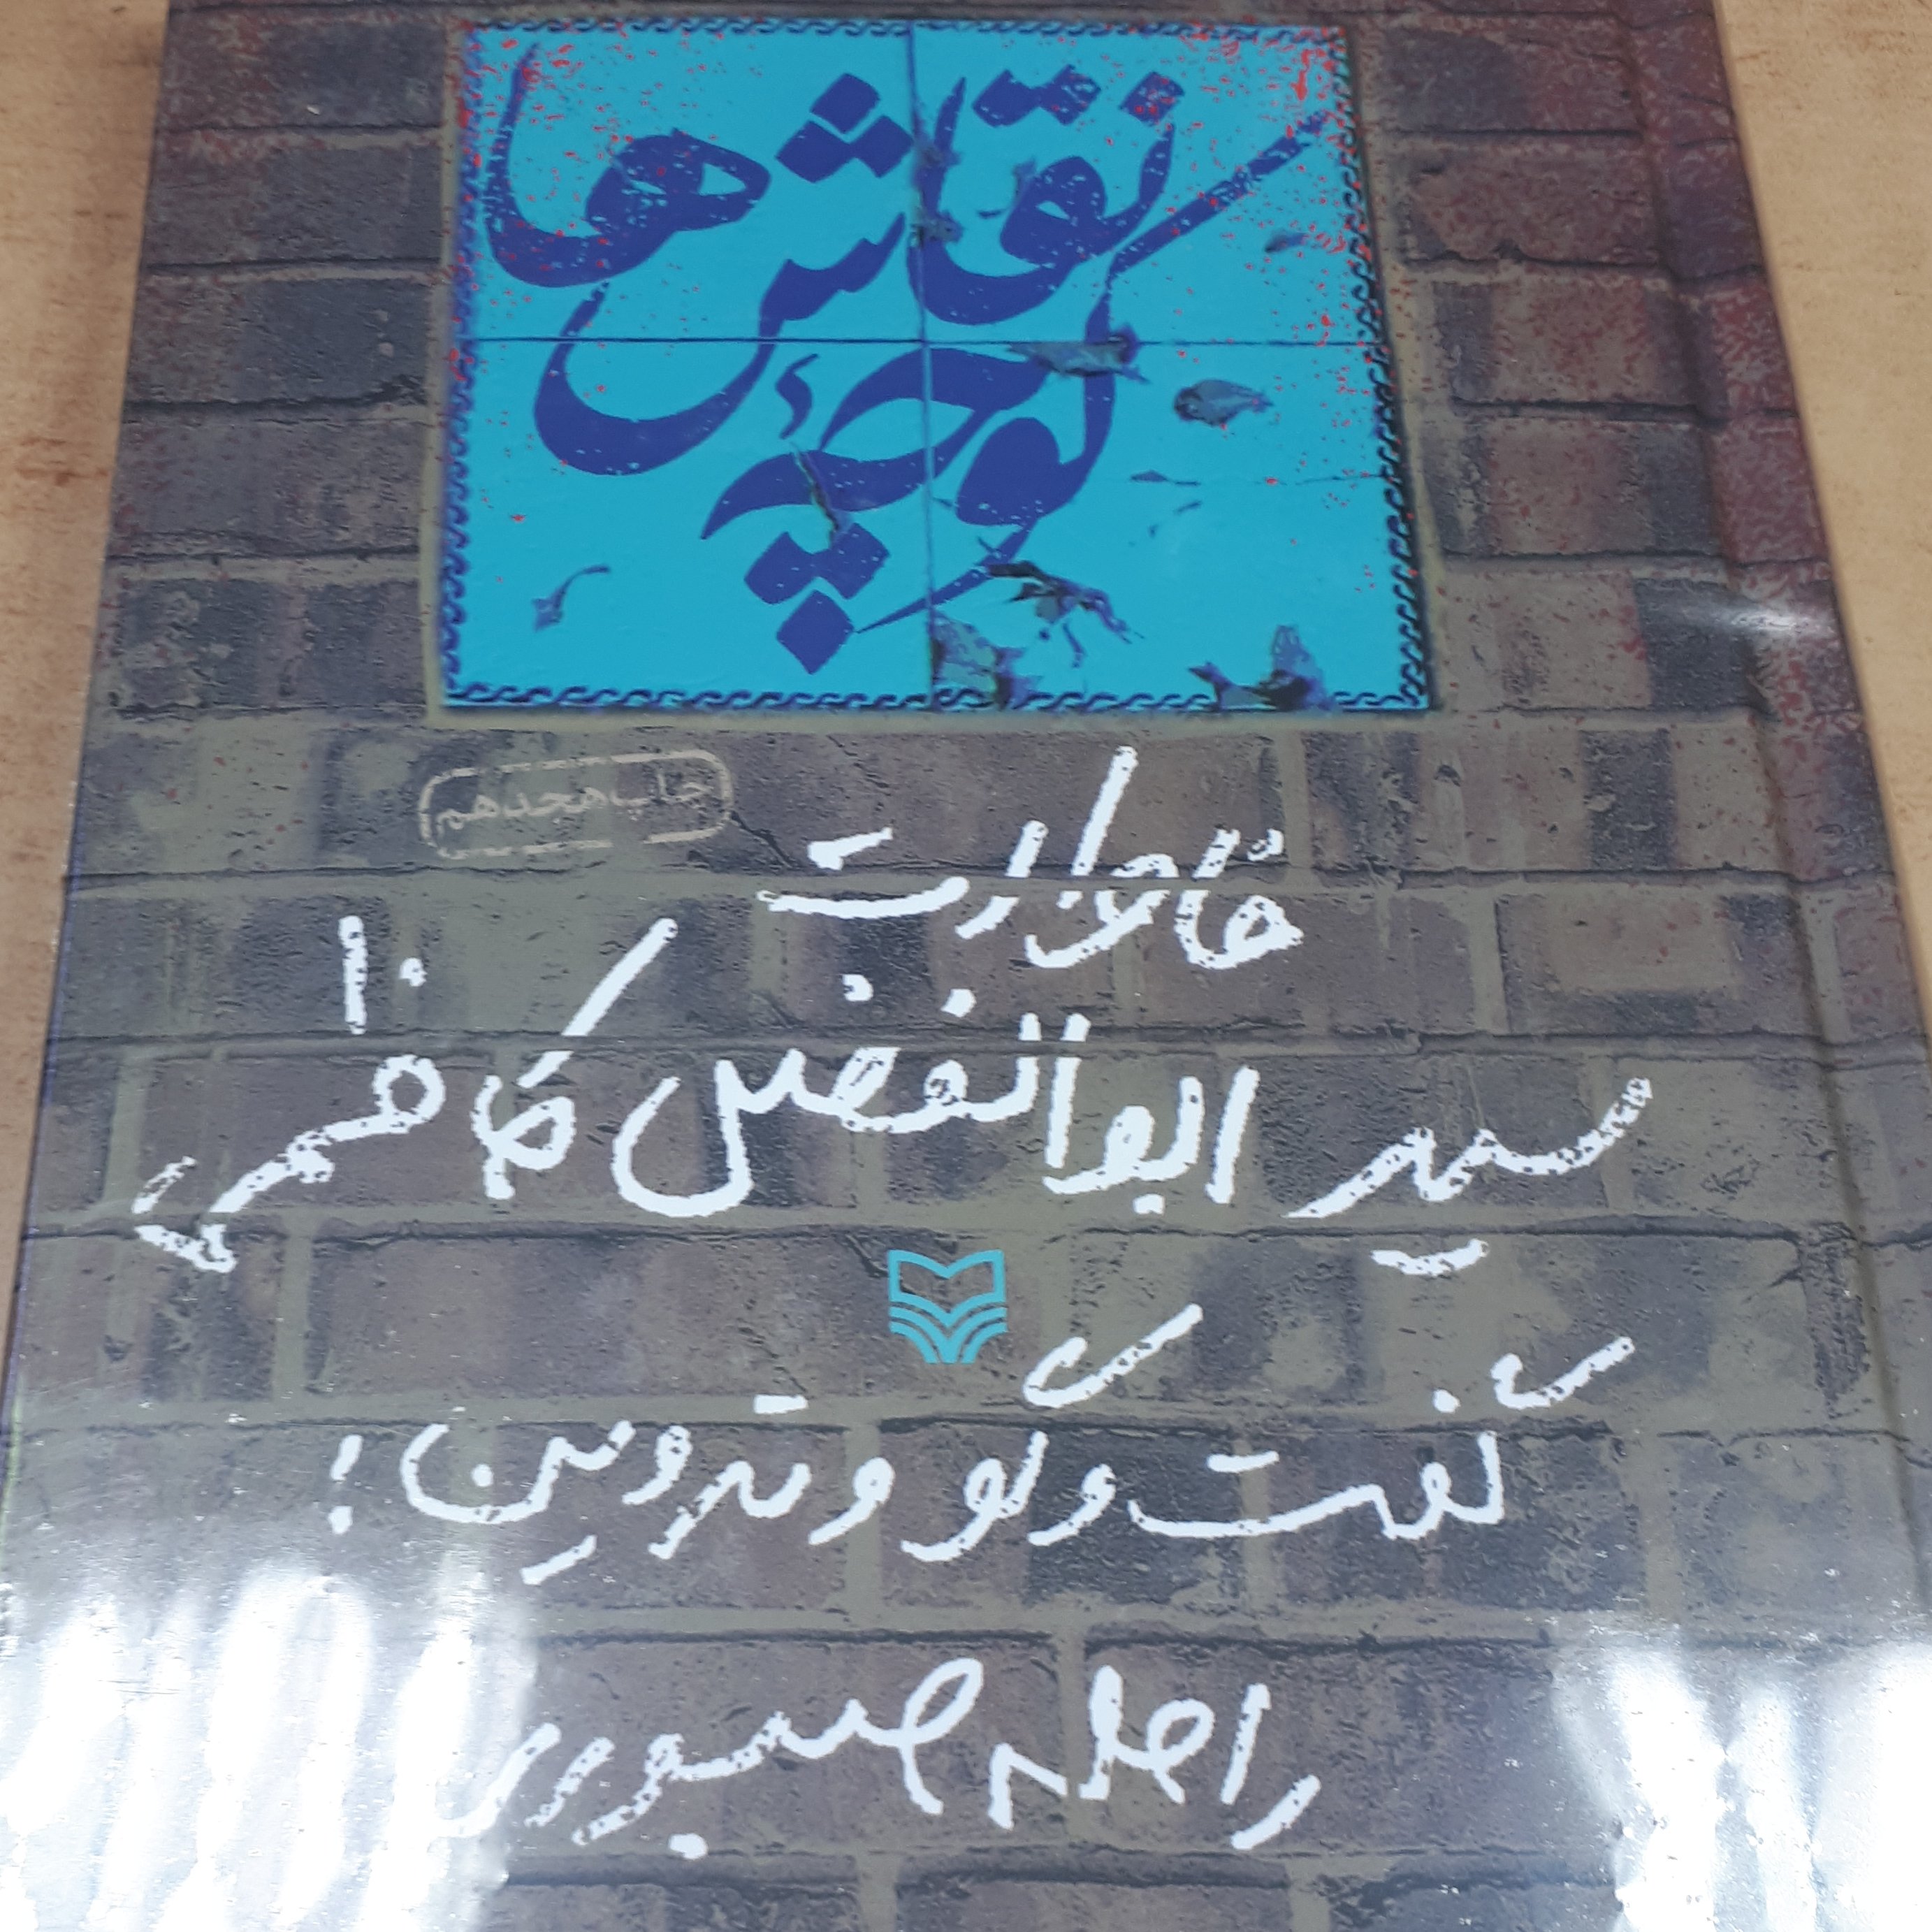 کوچه نقاش‌ها
چاپ هجدهم
خاطرات
سید ابوالفضل کاظمی
گفت و گو و تدوین:
راحله صبوری